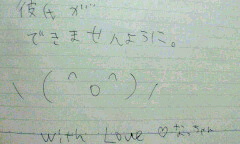 彼氏が
できませんように。
\ ( ^ o ^ ) /
with Love ♡ なっちゃん